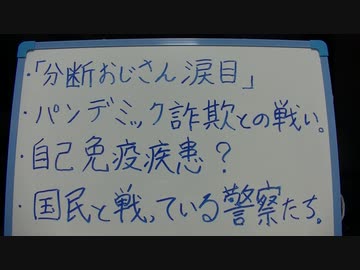 ・「分断おじさん涙目」
・パンデミック詐欺との戦い。
・自己免疫疾患？
・国民と戦っている警察たち。